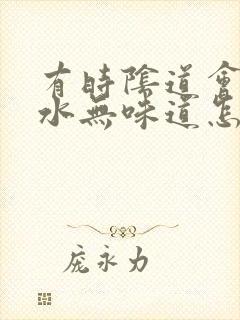 有時陰道會
水無味道怎
龐永力